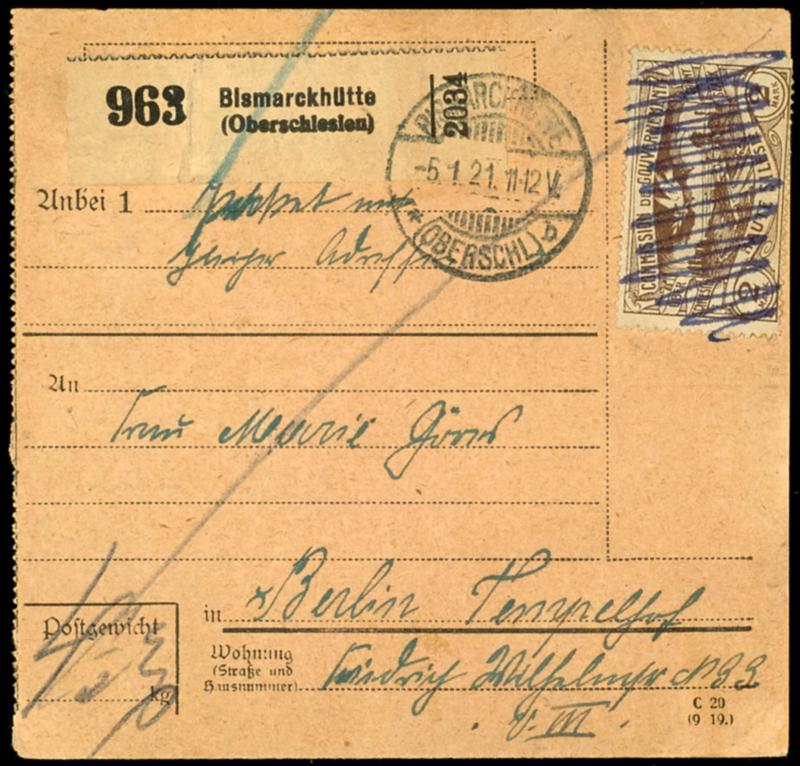 963 Bismarckhütte
(Oberschlesien)
2034
BISMARCKHÜTTE
-5.1.21. 11-12 V.
* (OBERSCHL.) d
COMMISSION DE GOUVERNEMENT
HAUTE SILÉSIE
2 MARK
2
Anbei 1 Paket mit
Adresse
An
Frau Marie Görres
in Berlin Tempelhof
Postgewicht
kg
Wohnung
(Straße und
Hausnummer)
Friedrich Wilhelmstr N 93
v. III.
C 20
(9 19.)